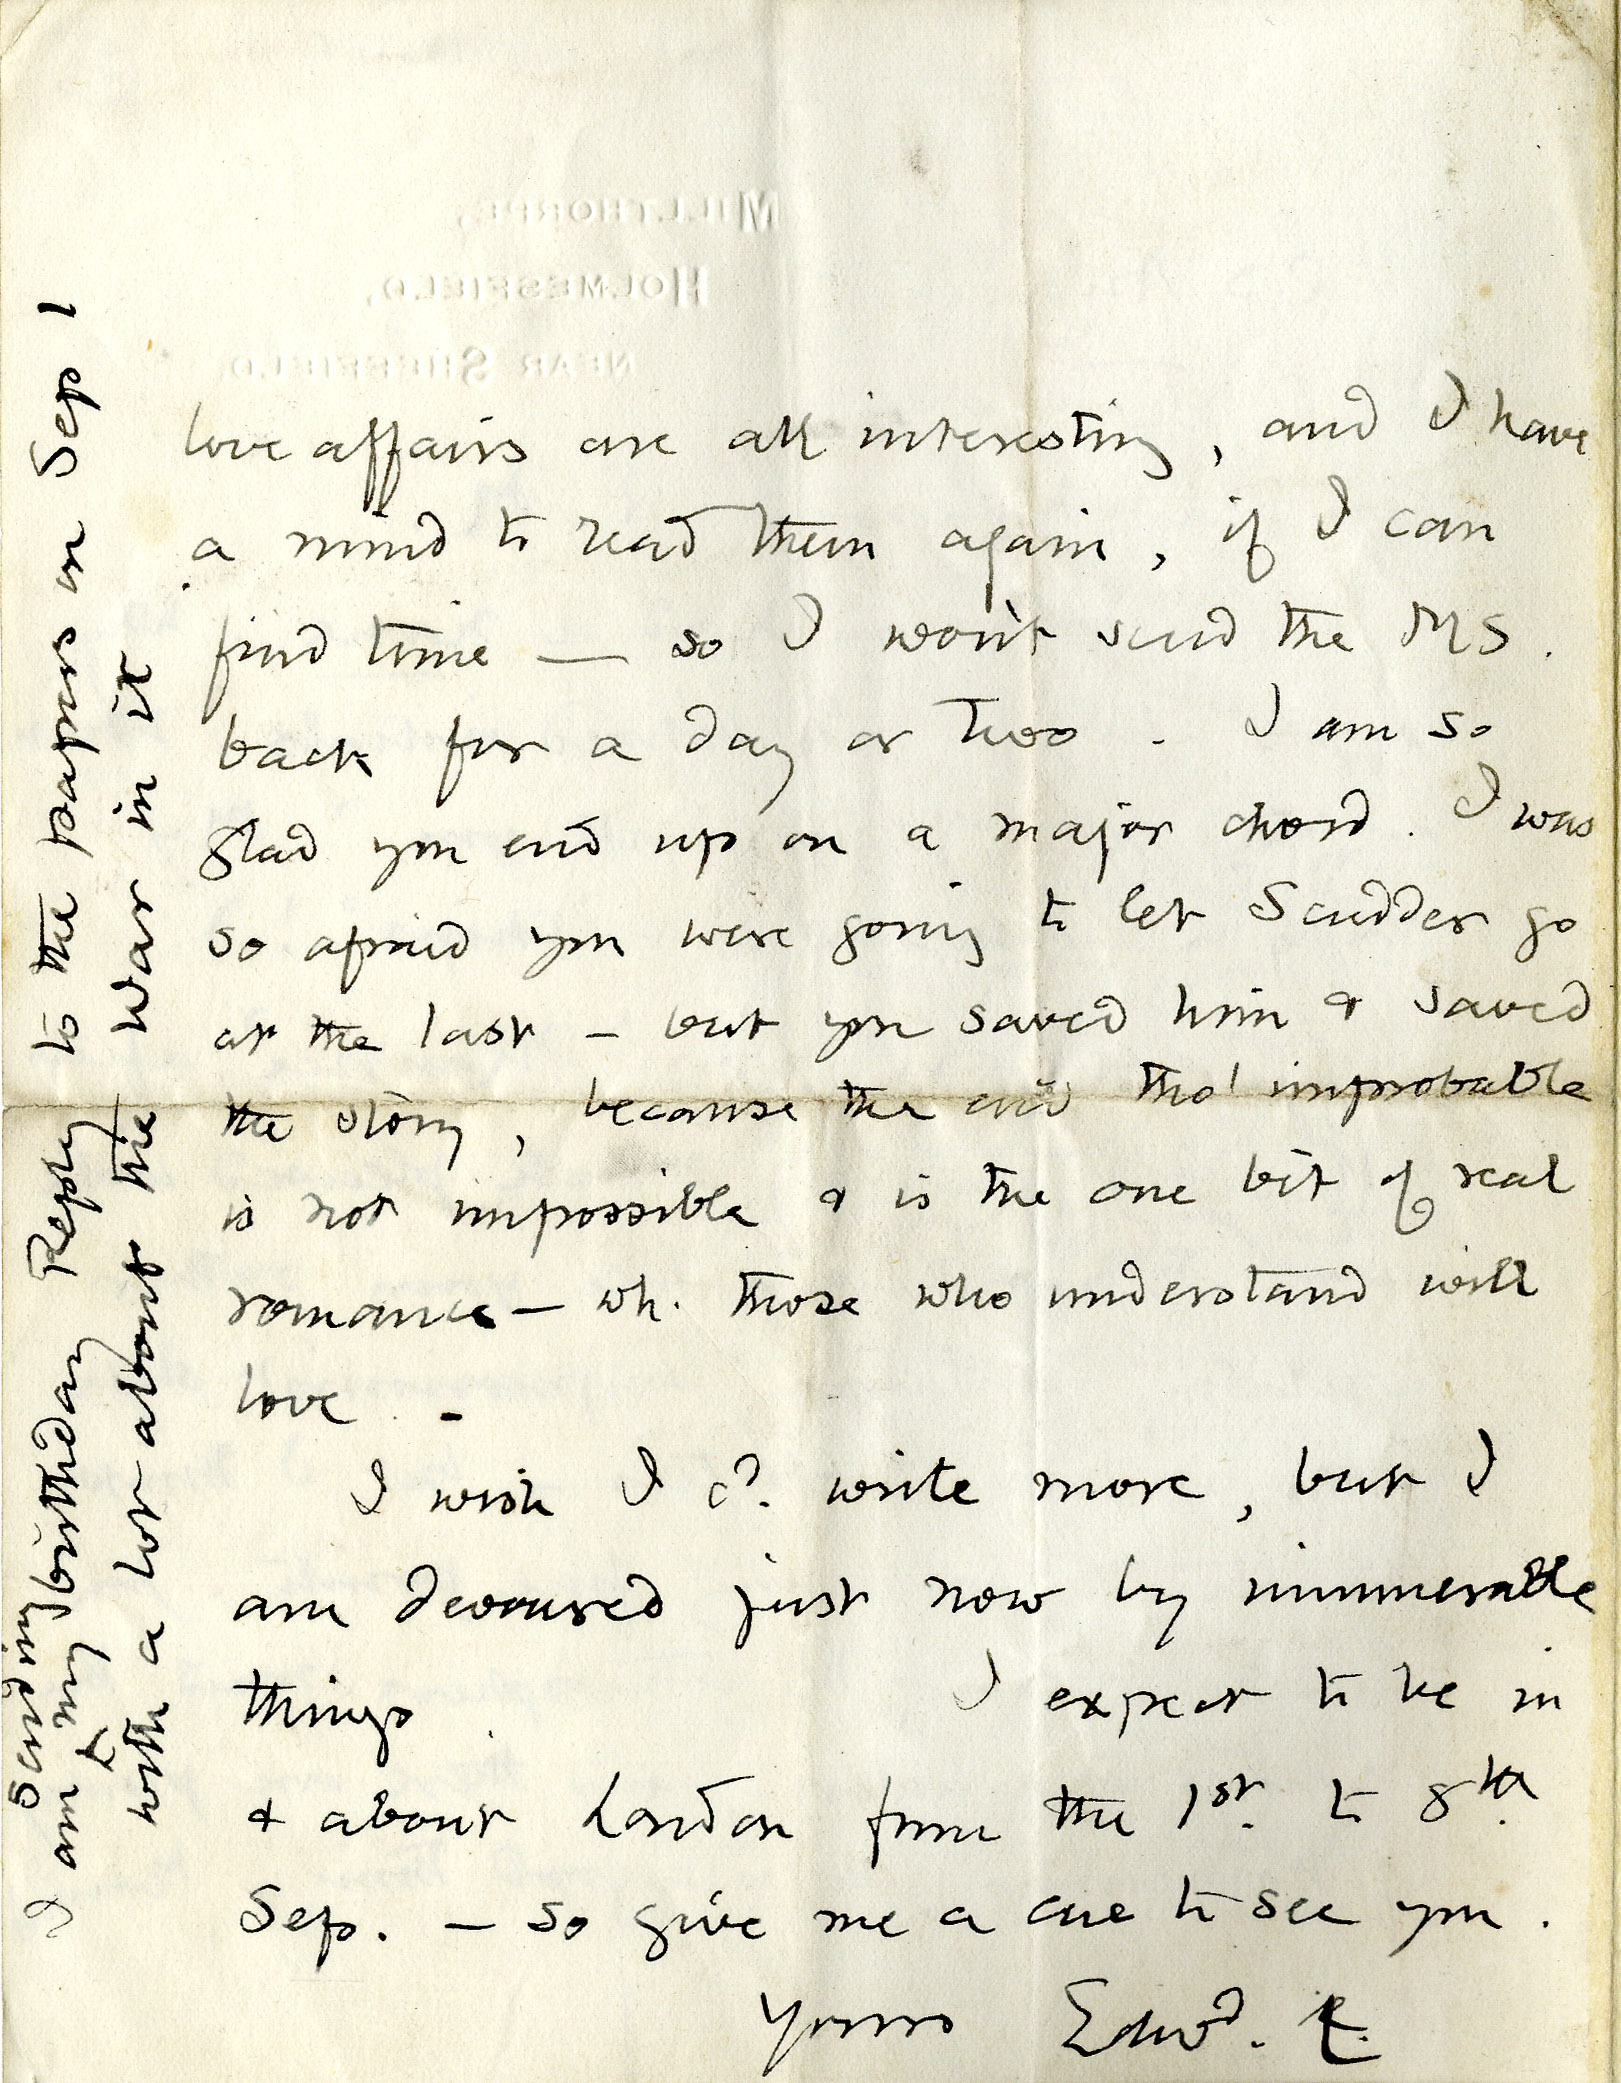 MILLTHORPE,
HOLMESFIELD,
NEAR SHEFFIELD.
love affairs are all interesting, and I have
a mind to read them again, if I can
find time — so I won't send the MS.
back for a day or two. I am so
glad you end up on a major chord. I was
so afraid you were going to let Scudder go
at the last — but you saved him & saved
the story, because the end tho' improbable
is not impossible & is the one bit of real
romance — wh. those who understand will
love. -
I wish I cd. write more, but I
am devoured just now by innumerable
things. I expect to be in
& about London from the 1st. to 8th.
Sep. — so give me a cue to see you.
Yours Edwd. C.
I am sending my birthday Reply to the papers on Sep 1
with a lot about the War in it